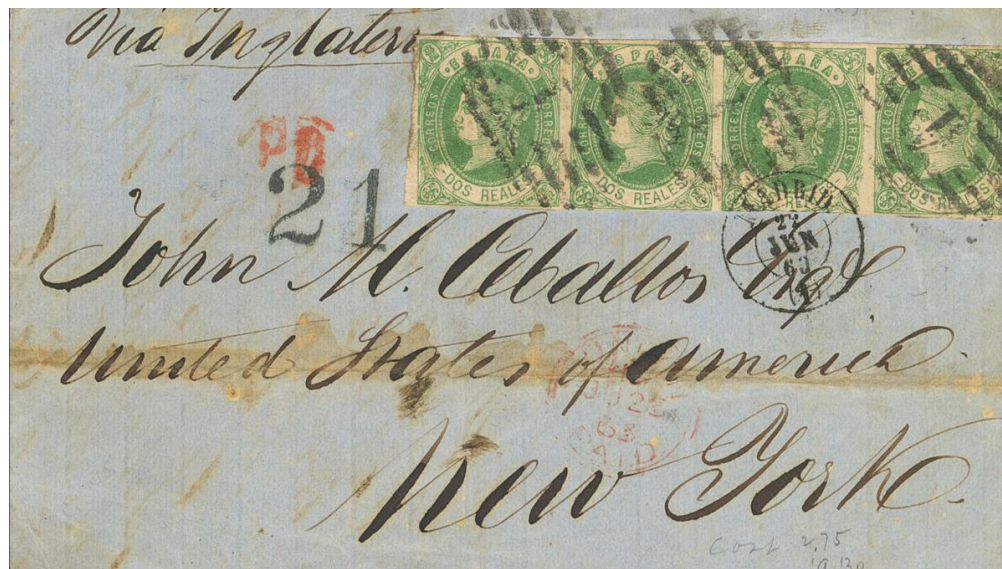 Via Inglaterra
ESPAÑA CORREOS CORREOS DOS REALES
ESPAÑA CORREOS CORREOS DOS REALES
ESPAÑA CORREOS CORREOS REALES
CORREOS DOS REALES
PD
21
22
JUN
63
John M. Ceballos Esqr
United States of America
63
PAID
New York.
Cost 2,75